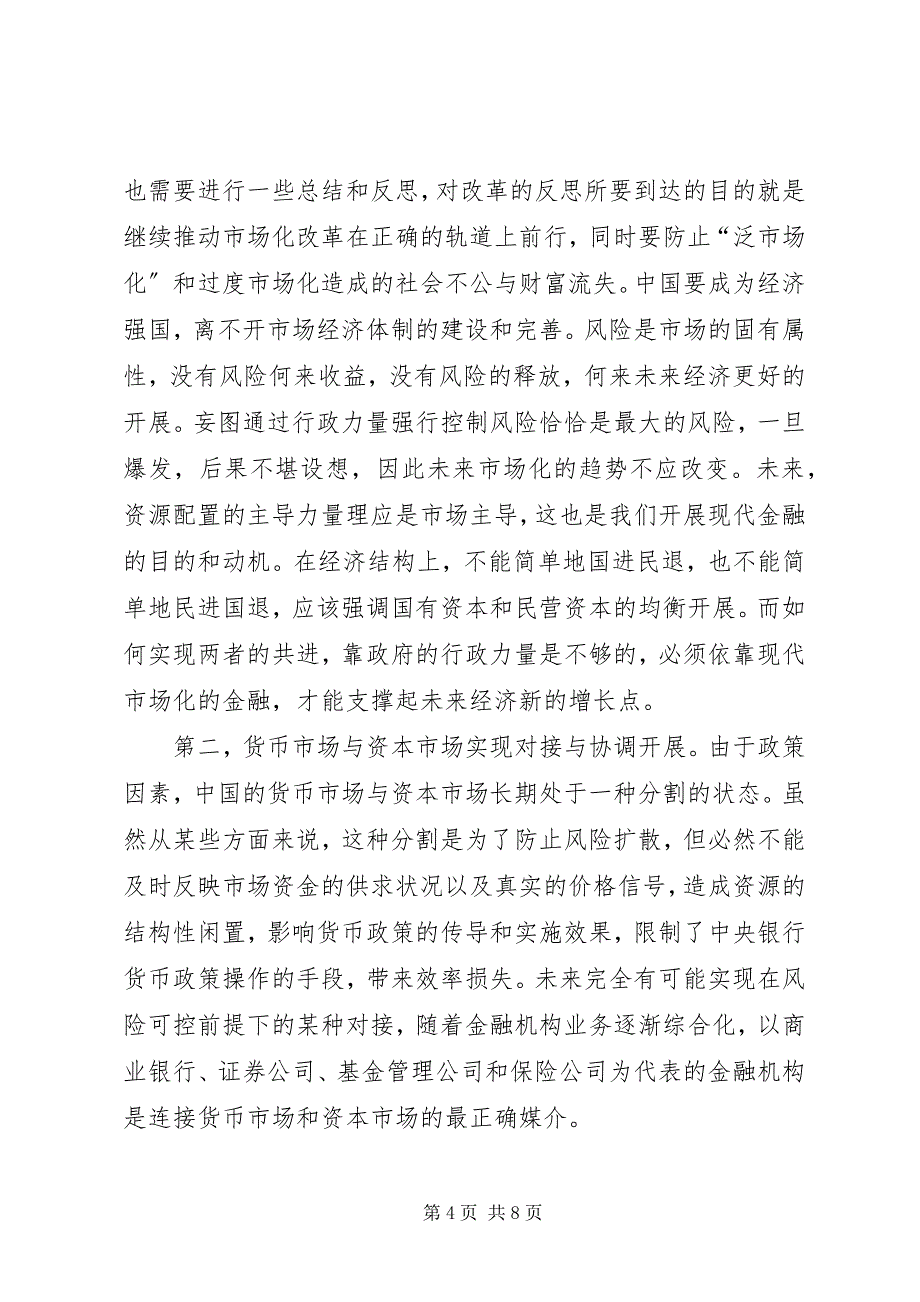 也需要进行一些总结和反思，对改革的反思所要到达的目的就是
继续推动市场化改革在正确的轨道上前行，同时要防止“泛市场
化〞和过度市场化造成的社会不公与财富流失。中国要成为经济
强国，离不开市场经济体制的建设和完善。风险是市场的固有属
性，没有风险何来收益，没有风险的释放，何来未来经济更好的
开展。妄图通过行政力量强行控制风险恰恰是最大的风险，一旦
爆发，后果不堪设想，因此未来市场化的趋势不应改变。未来，
资源配置的主导力量理应是市场主导，这也是我们开展现代金融
的目的和动机。在经济结构上，不能简单地国进民退，也不能简
单地民进国退，应该强调国有资本和民营资本的均衡开展。而如
何实现两者的共进，靠政府的行政力量是不够的，必须依靠现代
市场化的金融，才能支撑起未来经济新的增长点。
第二，货币市场与资本市场实现对接与协调开展。由于政策
因素，中国的货币市场与资本市场长期处于一种分割的状态。虽
然从某些方面来说，这种分割是为了防止风险扩散，但必然不能
及时反映市场资金的供求状况以及真实的价格信号，造成资源的
结构性闲置，影响货币政策的传导和实施效果，限制了中央银行
货币政策操作的手段，带来效率损失。未来完全有可能实现在风
险可控前提下的某种对接，随着金融机构业务逐渐综合化，以商
业银行、证券公司、基金管理公司和保险公司为代表的金融机构
是连接货币市场和资本市场的最正确媒介。
第 4 页 共 8 页